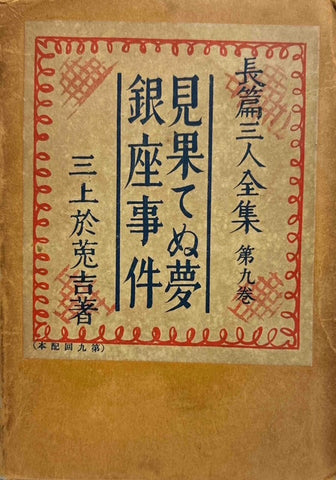 長篇三人全集 第九卷
見果てぬ夢
銀座事件
三上於菟吉著
(第九回配本)